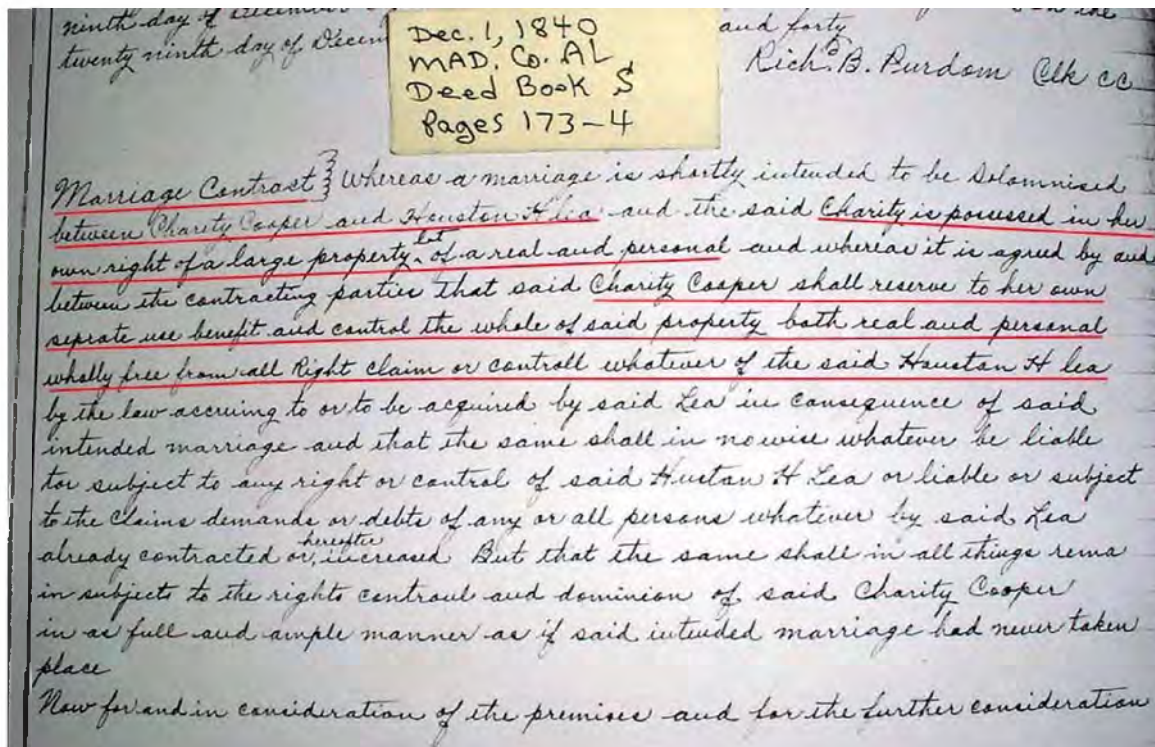 ninth day of December
twenty ninth day of Decem
and forty
Rich.d B. Purdom Clk cc
Dec. 1, 1840
MAD. Co. AL
Deed Book S
Pages 173-4
Marriage Contract } Whereas a marriage is shortly intended to be Solomnised
between Charity Cooper and Houston H Lea and the said Charity is possessed in her
own right of a large property bot of a real and personal and whereas it is agreed by and
between the contracting parties that said Charity Cooper shall reserve to her own
seprate use benefit and control the whole of said property both real and personal
wholly free from all Right claim or controll whatever of the said Houston H Lea
by the law accruing to or to be acquired by said Lea in consequence of said
intended marriage and that the same shall in nowise whatever be liable
tor subject to any right or control of said Huston H Lea or liable or subject
to the Claims demands or debts of any or all persons whatever by said Lea
already contracted or hereafter increased But that the same shall in all things rema
in subjects to the rights controul and dominion of said Charity Cooper
in as full and ample manner as if said intended marriage had never taken
place
Now for and in consideration of the premises and for the further consideration